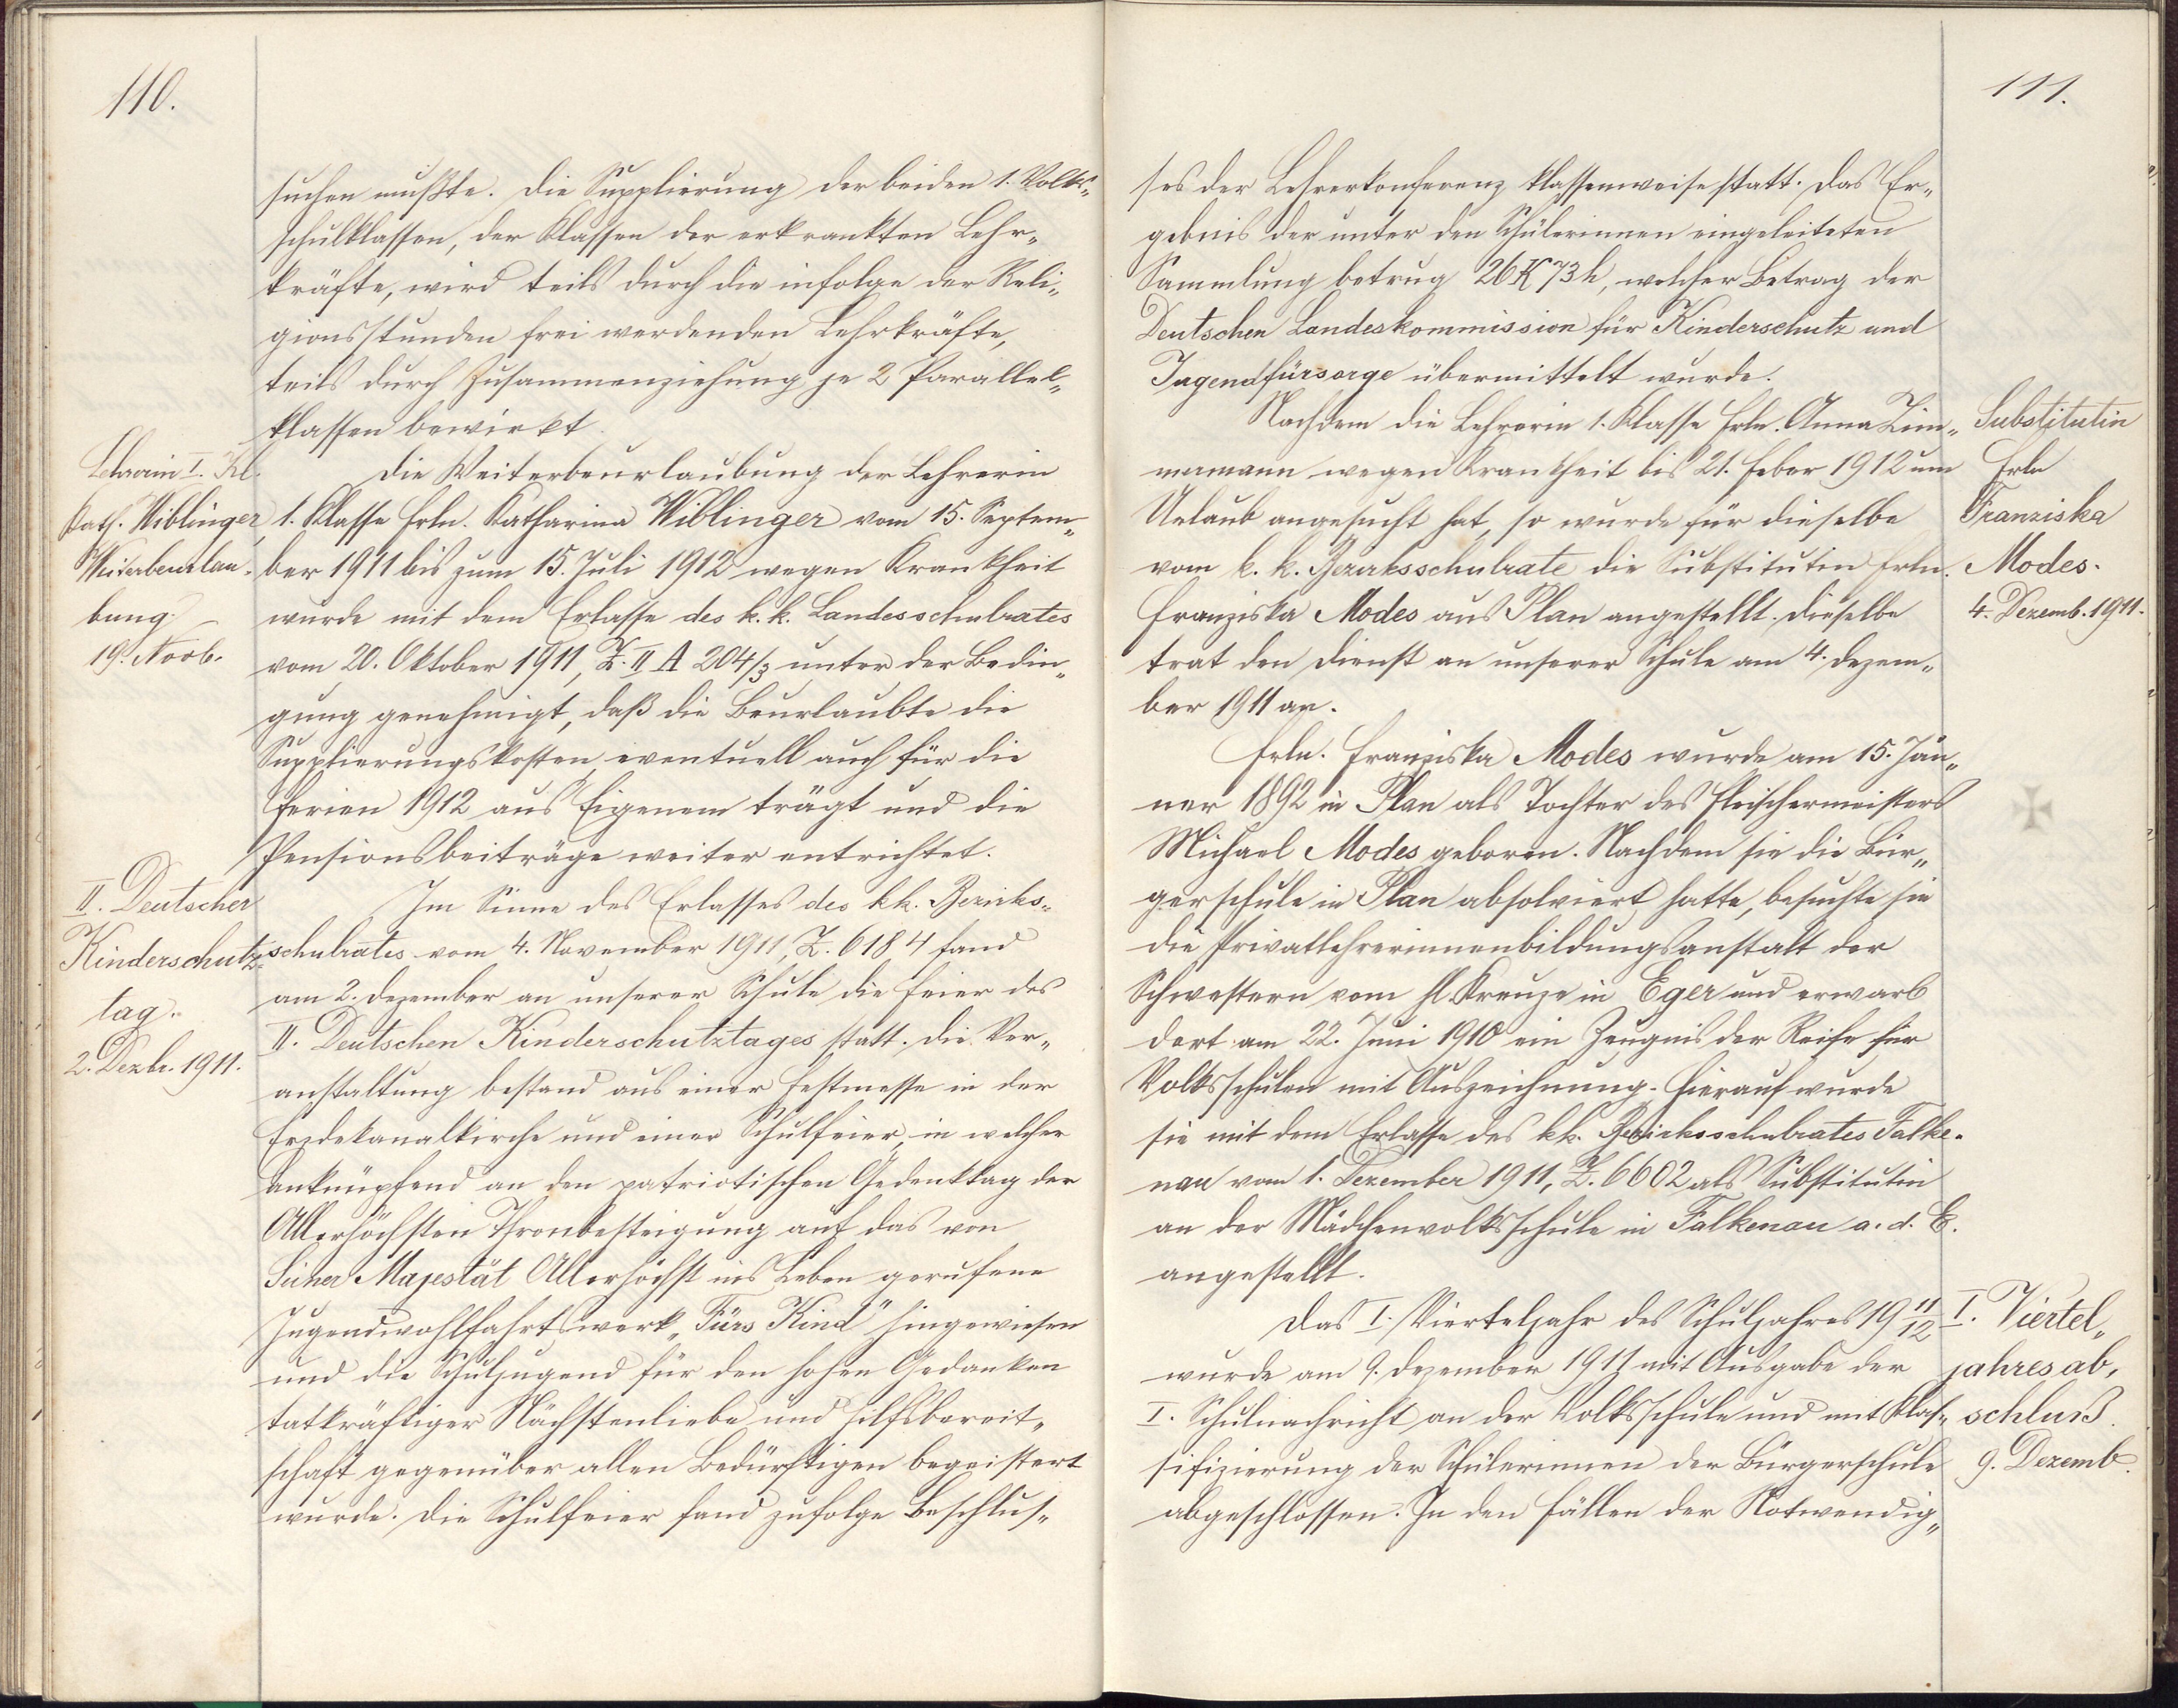 110.
suchen mußte. Die Supplierung der beiden 1. Volks-
schulklassen, der Klassen der erkrankten Lehr-
kräfte, wird teils durch die infolge der Reli-
gionsstunden frei werdenden Lehrkräfte,
teils durch Zusammenziehung je 2 Parallel-
klassen bewirkt.
Lehrerin I. Kl.
Kath. Wiblinger,
Weiterbeurlau-
bung.
19. Novb.
Die Weiterbeurlaubung der Lehrerin
1. Klasse Frln. Katharina Wiblinger vom 15. Septem-
ber 1911 bis zum 15. Juli 1912 wegen Krankheit
wurde mit dem Erlasse des k. k. Landesschulrates
vom 20. Oktober 1911, Z. II A 204/3 unter der Bedin-
gung genehmigt, daß die Beurlaubte die
Supplierungskosten, eventuell auch für die
Ferien 1912 aus Eigenem trägt und die
Pensionsbeiträge weiter entrichtet.
II. Deutscher
Kinderschutz-
tag.
2. Dezbr. 1911.
Im Sinne des Erlasses des kk. Bezirks-
schulrates vom 4. November 1911, Z. 6184 fand
am 2. Dezember an unserer Schule die Feier des
II. Deutschen Kinderschutztages statt. Die Ver-
anstaltung bestand aus einer Festmesse in der
Erzdekanalkirche und einer Schulfeier, in welcher
anknüpfend an den patriotischen Gedenktag der
Allerhöchsten Thronbesteigung auf das von
Seiner Majestät Allerhöchst ins Leben gerufene
Jugendwohlfahrtswerk „Fürs Kind" hingewiesen
und die Schuljugend für den hohen Gedanken
tatkräftiger Nächstenliebe und Hilfsbereit-
schaft gegenüber allen Bedürftigen begeistert
wurde. Die Schulfeier fand zufolge Beschlus-
111.
ses der Lehrerkonferenz klassenweise statt. Das Er-
gebnis der unter den Schülerinnen eingeleiteten
Sammlung betrug 26 K 73 h, welcher Betrag der
Deutschen Landeskommission für Kinderschutz und
Jugendfürsorge übermittelt wurde.
Substitutin
Frln
Franziska
Modes.
4. Dezemb. 1911.
Nachdem die Lehrerin 1. Klasse Frln. Anna Zim-
mermann wegen Krankheit bis 21. Feber 1912 um
Urlaub angesucht hat, so wurde für dieselbe
vom k. k. Bezirksschulrate die Substitutin Frln.
Franziska Modes aus Plan angestellt. Dieselbe
trat den Dienst an unserer Schule am 4. Dezem-
ber 1911 an.
Frln. Franziska Modes wurde am 15. Jän-
ner 1892 in Plan als Tochter des Fleischermeisters
Michael Modes geboren. Nachdem sie die Bür-
gerschule in Plan absolviert hatte, besuchte sie
die Privatlehrerinnenbildungsanstalt der
Schwestern vom hl. Kreuze in Eger und erwarb
dort am 22. Juni 1910 ein Zeugnis der Reife für
Volksschulen mit Auszeichnung. Hierauf wurde
sie mit dem Erlasse des kk. Bezirksschulrates Falke-
nau vom 1. Dezember 1911, Z. 6602 als Substitutin
an der Mädchenvolksschule in Falkenau a. d. E.
angestellt.
I. Viertel-
jahresab-
schluß.
9. Dezemb.
Das I. Vierteljahr des Schuljahres 19 11/12
wurde am 9. Dezember 1911 mit Ausgabe der
I. Schulnachricht an der Volksschule und mit Klas-
sifizierung der Schülerinnen der Bürgerschule
abgeschlossen. In den Fällen der Notwendig-